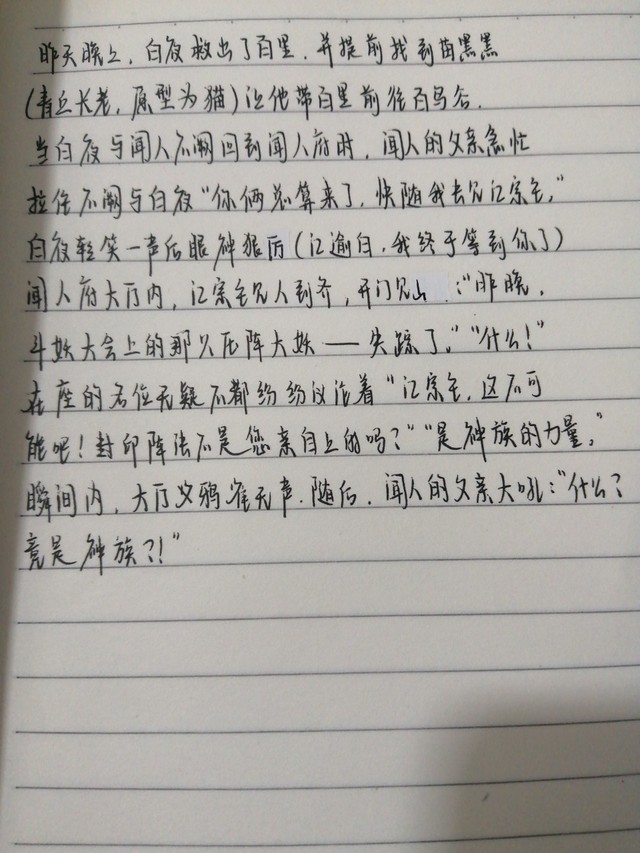 昨天晚上，白夜救出了百里．并提前找到苗黑黑
(青丘长老，原型为猫)让他带百里前往百鸟谷．
当白夜与闻人不阙回到闻人府时，闻人的父亲急忙
拉住不阙与白夜“你俩总算来了，快随我去见江宗主。”
白夜轻笑一声后眼神狠厉(江逾白，我终于等到你了)
闻人府大厅内，江宗主见人到齐，开门见山．:“昨晚，
斗妖大会上的那只压阵大妖——失踪了。”“什么!”
在座的各位无疑不都纷纷议论着“江宗主，这不可
能吧!封印阵法不是您亲自上的吗?”“是神族的力量。”
瞬间内，大厅又鸦雀无声．随后．闻人的父亲大吼:“什么?
竟是神族?!”